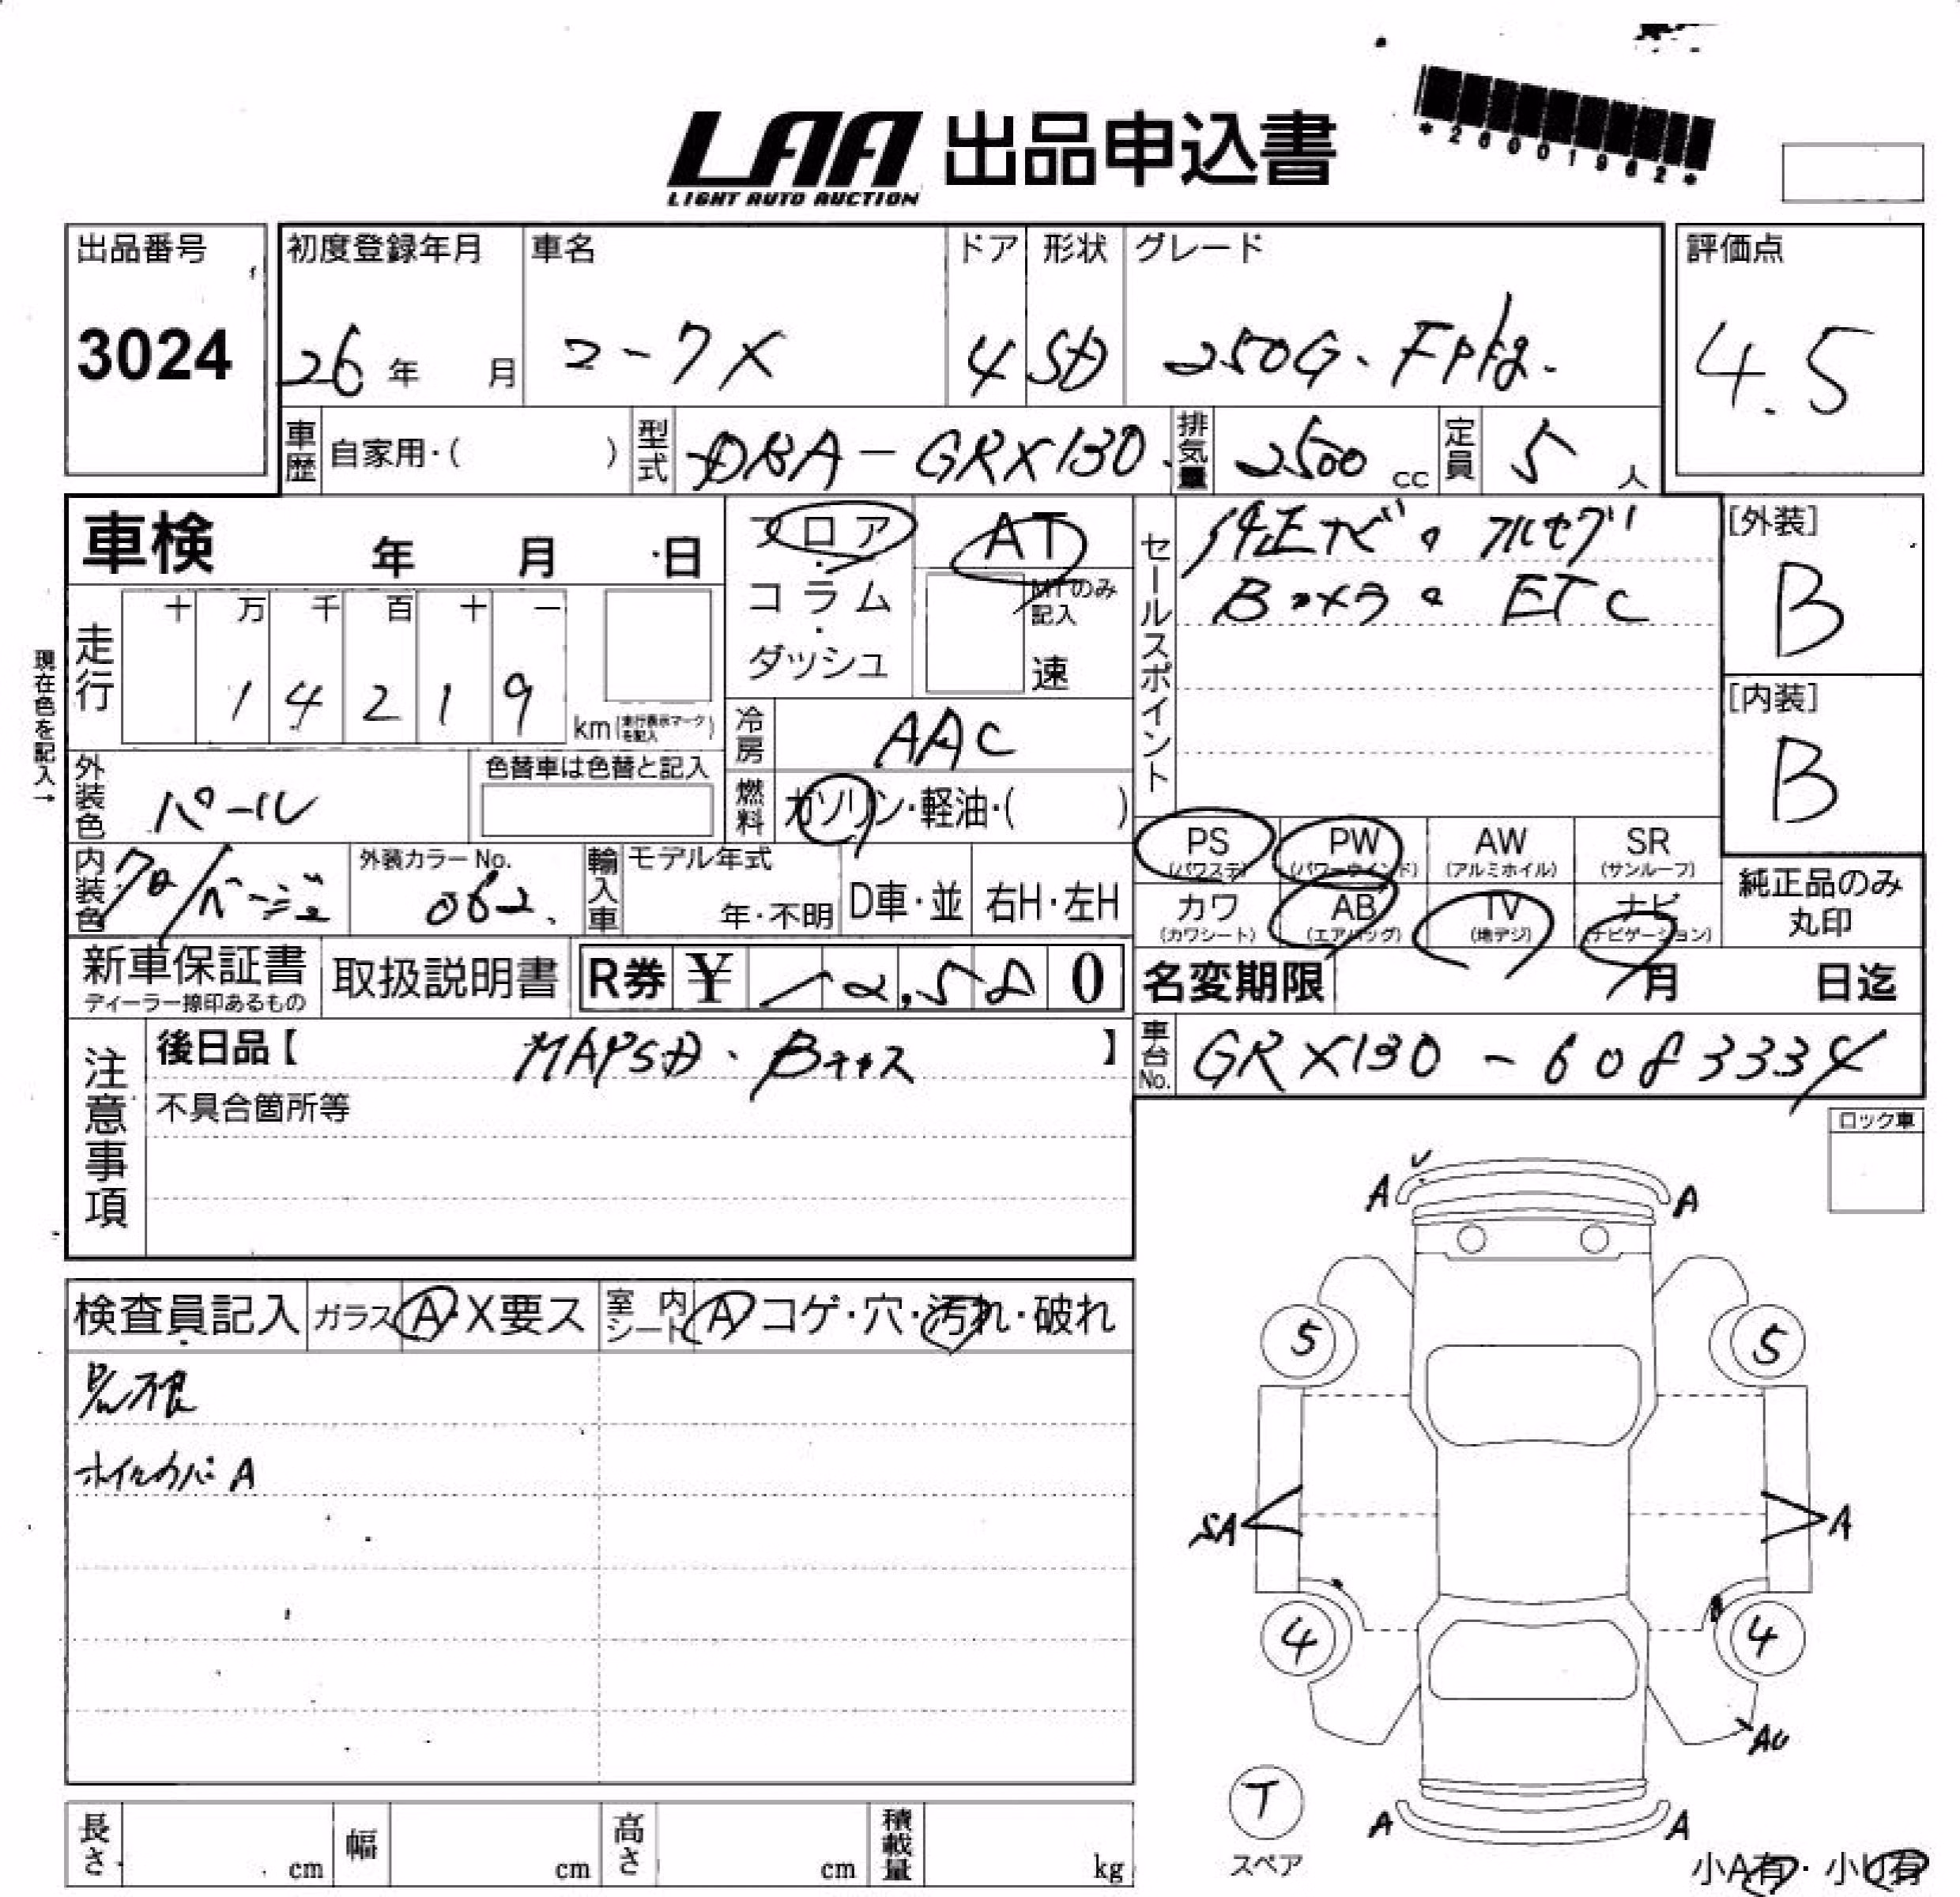 *26001962*
LAA 出品申込書
LIGHT AUTO AUCTION
出品番号 初度登録年月 車名 ドア 形状 グレード 評価点
3024 26年 月 マークX 4 SD 250G・Fpkg. 4.5
車歴 自家用・( ) 型式 DBA-GRX130 排気量 2500 cc 定員 5 人
車検 年 月 日
フロア・コラム・ダッシュ
AT
MTのみ記入
速
セールスポイント
純正ナビ。フルセグ
Bカメラ。ETC
[外装]
B
[内装]
B
現在色を記入→
走行 十 万 千 百 十 一
1 4 2 1 9
km(走行表示マークを記入)
冷房 AAC
外装色 パール 色替車は色替と記入
燃料 ガソリン・軽油・( )
PS (パワステ) PW (パワーウインド) AW (アルミホイル) SR (サンルーフ)
カワ (カワシート) AB (エアバッグ) TV (地デジ) ナビ (ナビゲーション)
純正品のみ丸印
内装色 クロ/ベージュ 外装カラーNo. 062. 輸入車 モデル年式 年・不明 D車・並 右H・左H
新車保証書 ディーラー捺印あるもの 取扱説明書 R券 ¥ 12,580
名変期限 月 日迄
注意事項
後日品【 MAPSD、Bカメス 】
車台No. GRX130-6083334
不具合箇所等
ロック車
検査員記入 ガラス A・X要ス 室内シート A コゲ・穴・汚れ・破れ
ホイルカバーA
A A
5 5
SA A
4 4
AU
T
スペア
A A
小A有・小U有
長さ cm 幅 cm 高さ cm 積載量 kg